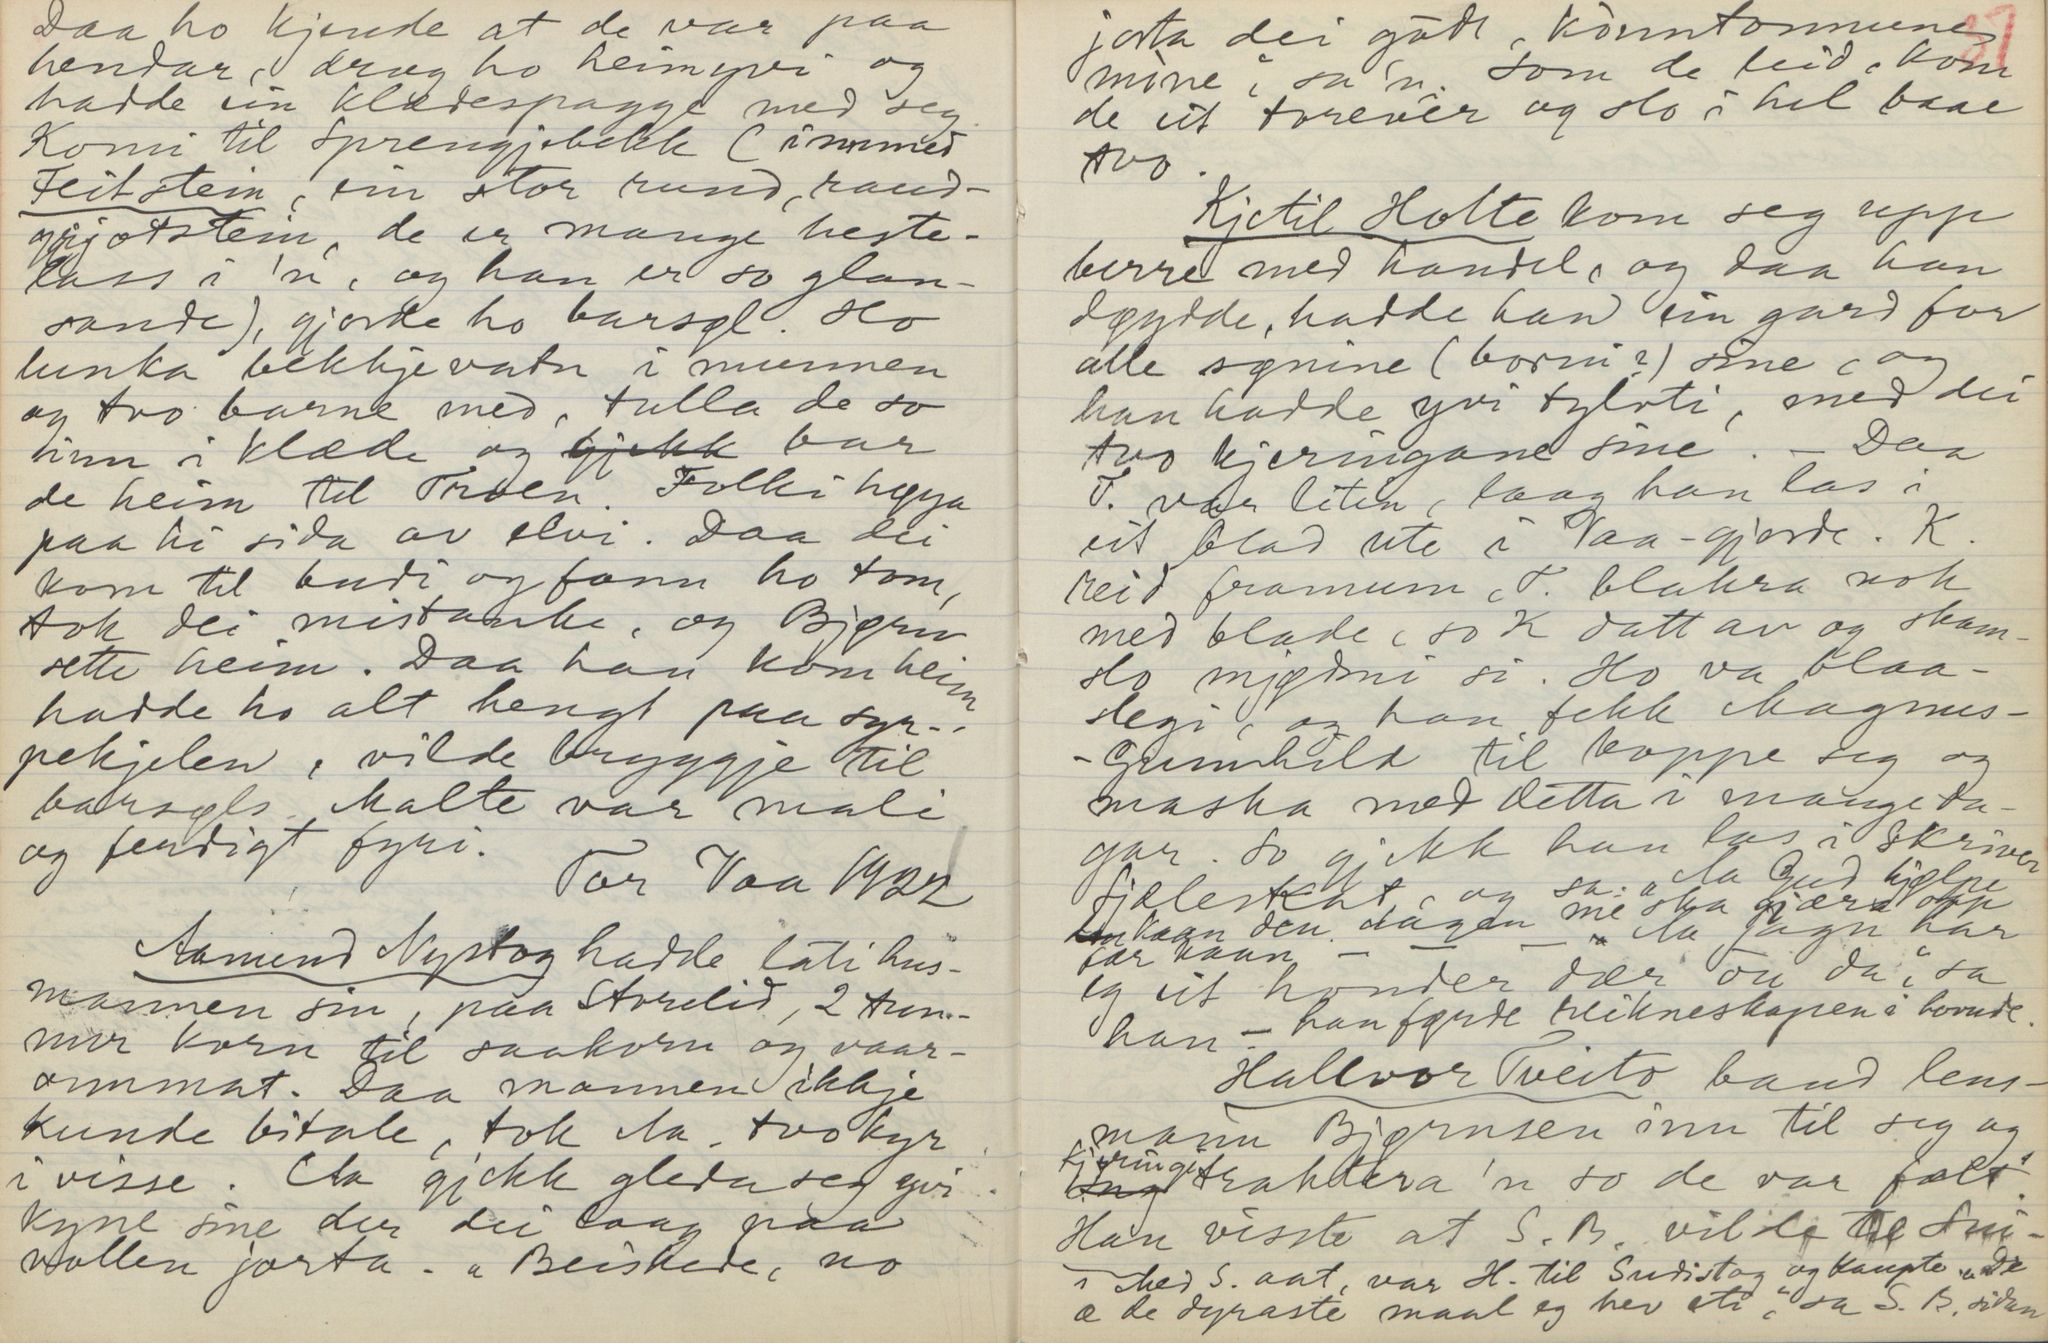 Daa ho kjende at de var paa
hendar, drog ho heimyvi og
hadde ein klædespagge med seg
Komi til Sprengjebekk (innmed
Feitstein, ein stor rund, raud-
grjotstein, de er mange heste-
lass i 'n, og han er so glan-
sande), gjorde ho barsøl. Ho
lunka bekkjevatn i munnen
og tvo barne med, tulla de so
inn i klæde og gjekk bar
de heim til Troen. Folki høya
paa hi sida av elvi. Daa dei
kom til budi og fann ho tom,
tok dei mistanke, og Bjørn
sette heim. Daa han kom heim
hadde ho alt hengt paa syr-
pekjelen, vilde bryggje til
barsøls. Malte var mali
og ferdigt fyri.
Tor Vaa 1922
Aamund Nystog hadde lati hus-
mannen sin, paa Storelid, 2 tun-
nur korn til saakorn og vaar-
ommat. Daa mannen ikkje
kunde bitale, tok Aa. tvo kyr
i visse. Aa gjekk gleda seg yvi
kyne sine der dei laag paa
vollen jorta. „Beiskede, no
37
jorta dei gødt, konntonnune
mine", sa'n. Som de leid, kom
de eit torevêr og slo i hel baae
tvo.
Kjetil Holte kom seg upp
berre med handel, og daa han
døydde, hadde han ein gard for
alle sønine (borni?) sine, og
han hadde yvi tylvti, med dei
tvo kjeringane sine. – Daa
T. var liten, laag han las i
eit blad ute i Vaa-gjorde. K.
reid framum, T. blakra nok
med blade, so K datt av og skam-
slo mjødmi si. Ho va blaa-
slegi, og han fekk Magnus-
-Gunnhild til koppe seg og
maska med detta i mange da-
gar. So gjekk han las i Skriver
Sjælestat, og sa: „Aa Gud hjølpe
kaan den dagen me ska gjæra opp
før kaan – — — „Aa jagn har
eg eit honder dær òu da", sa
han – han førde reikneskapen i hovude.
Hallvor Tveito baud lens-
mann Bjørnsen inn til seg og
kjeringi traktera 'n so de var fælt.
Han visste at S. B. vilde til Sui-
i Med S. aat, var H. til Sudistog og kaupte. „De
æ de dyraste maal eg hev eti", sa S. B. sidan